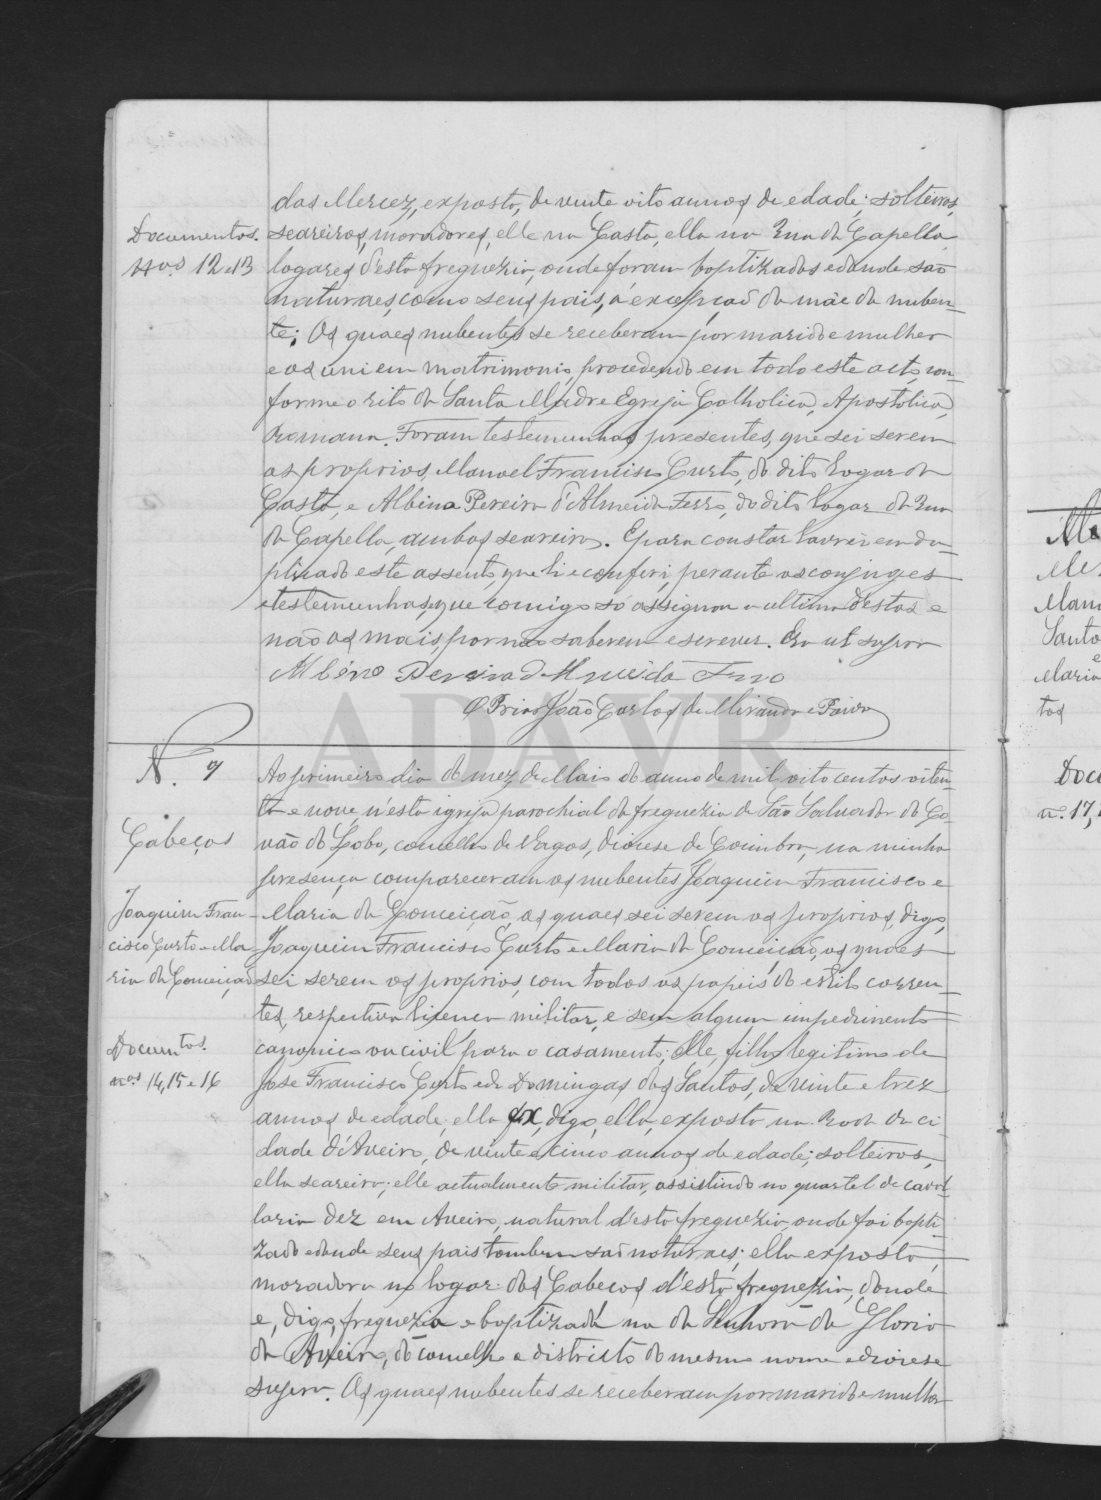 das Mercez, exposta, de vinte oito annos de edade; solteiros,
Documentos.
Nos 12 e 13
seareiros, moradores, elle na Gasta, ella na Rua da Capella,
logares d'esta freguezia, onde foram baptizados e donde são
naturaes, como seus pais, á excepção da mãe da nuben-
te; Os quaes nubentes se receberam por marido e mulher
e os uni em matrimonio, procedendo em todo este acto, con-
forme o rito da Santa Madre Egreja Catholica, Apostolica,
Romana. Foram testemunhas presentes, que sei serem
os proprios, Manoel Francisco Curto, do dito logar da
Gasta, e Albino Pereira d'Almeida Ferro, do dito logar da Rua
da Capella, ambos seareiros. E para constar lavrei em du-
plicado este assento, que li e conferi perante os conjuges
e testemunhas, que comigo só assignou a ultima d'estas e
não os mais, por não saberem escrever. Era ut supra
Albino Pereira d'Almeida Ferro
O Prior João Carlos de Miranda e Paiva
ADAVR
N. 7
Cabeços
Joaquim Fran-
cisco Curto e Ma-
ria da Conceição
Documtos.
nos 14, 15 e 16
Ao primeiro dia do mez de Maio do anno de mil oito centos oiten-
ta e nove, n'esta igreja parochial da freguezia de São Salvador do Co-
vão do Lobo, concelho de Vagos, diocese de Coimbra, na minha
presença compareceram os nubentes Joaquim Francisco e
Maria da Conceição, os quaes sei serem os proprios, digo,
Joaquim Francisco Curto e Maria da Conceição, os quaes
sei serem os proprios, com todos os papeis do estilo corren-
tes, respectiva licença militar, e sem algum impedimento
canonico ou civil para o casamento; Elle, filho legitimo de
José Francisco Curto e de Domingas dos Santos, de vinte e trez
annos de edade, ella ex, digo, ella, exposta na Roda da ci-
dade d'Aveiro, de vinte e cinco annos de edade; solteiros,
ella seareira; elle actualmente militar, assistindo no quartel de caval-
laria dez em Aveiro, natural d'esta freguezia, onde foi bapti-
zado e donde seus pais tambem são naturaes; ella exposta,
moradora no logar dos Cabeços d'esta freguezia, donde
e, digo, freguezia e baptizada na da Senhora da Gloria
da Aveiro, do concelho e districto do mesmo nome e diocese
supra. Os quaes nubentes se receberam por marido e mulher
Santo
Maria
tos